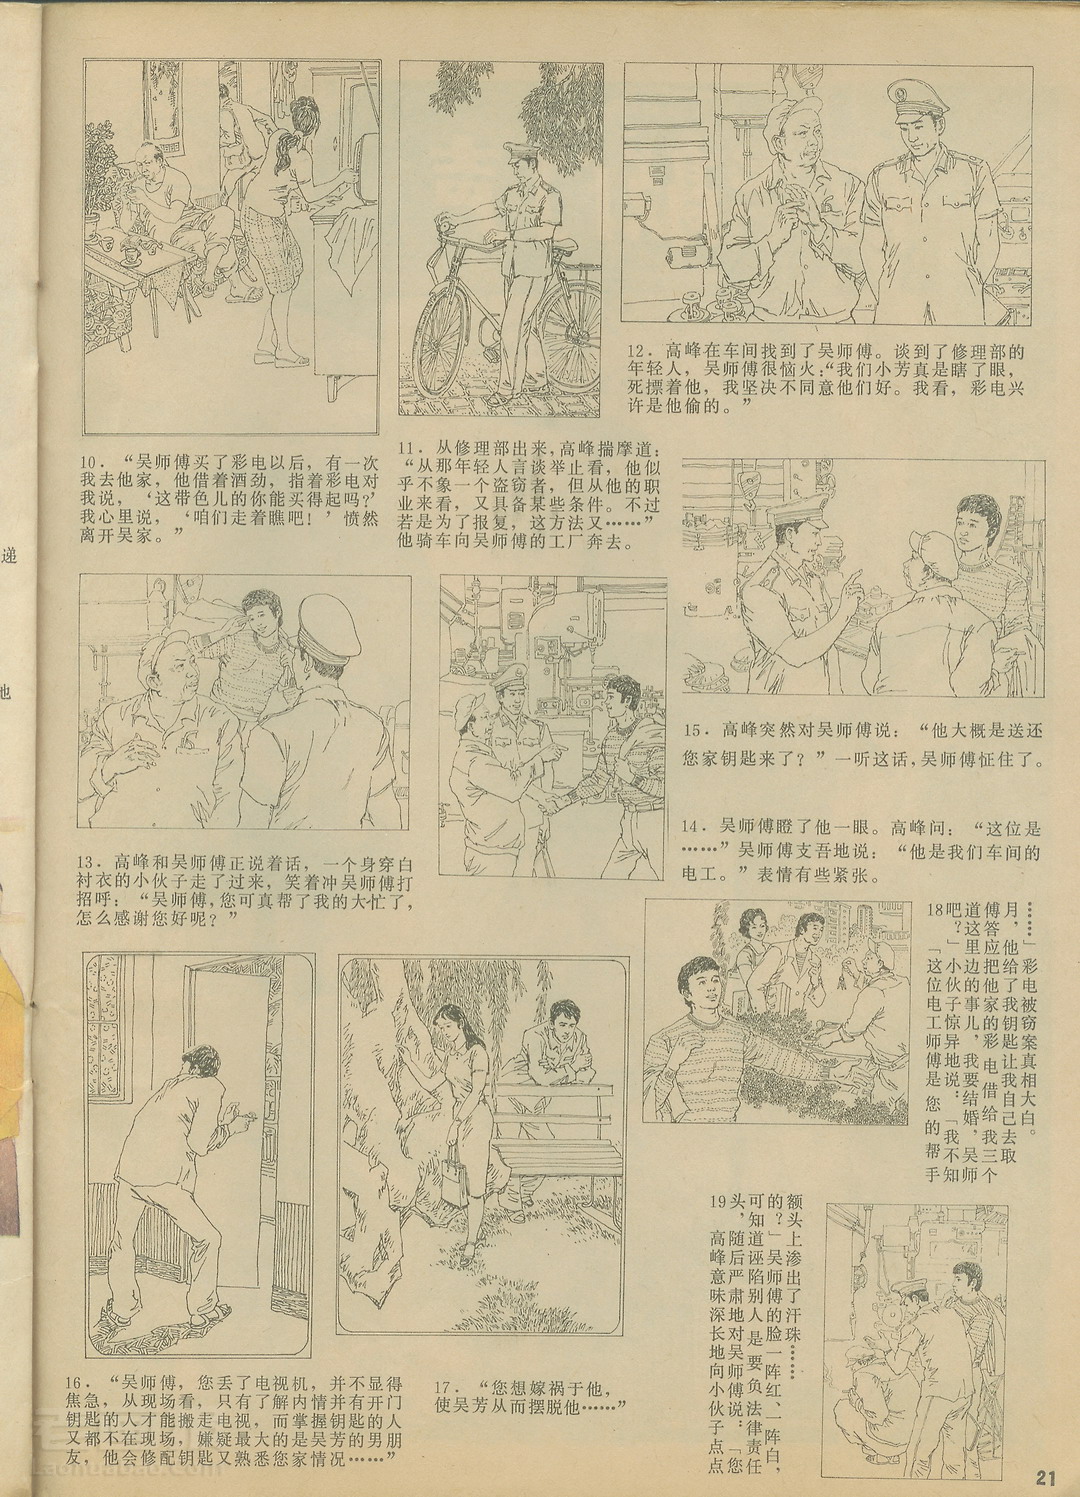 10．“吴师傅买了彩电以后，有一次
我去他家，他借着酒劲，指着彩电对
我说，‘这带色儿的你能买得起吗?’
我心里说，‘咱们走着瞧吧！’愤然
离开吴家。”
11．从修理部出来，高峰揣摩道：
“从那年轻人言谈举止看，他似
乎不象一个盗窃者，但从他的职
业来看，又具备某些条件。不过
若是为了报复，这方法又……”
他骑车向吴师傅的工厂奔去。
12．高峰在车间找到了吴师傅。谈到了修理部的
年轻人，吴师傅很恼火：“我们小芳真是瞎了眼，
死摽着他，我坚决不同意他们好。我看，彩电兴
许是他偷的。”
13．高峰和吴师傅正说着话，一个身穿白
衬衣的小伙子走了过来，笑着冲吴师傅打
招呼：“吴师傅，您可真帮了我的大忙了，
怎么感谢您好呢？”
15．高峰突然对吴师傅说：“他大概是送还
您家钥匙来了？”一听这话，吴师傅怔住了。
14．吴师傅瞪了他一眼。高峰问：“这位是
……”吴师傅支吾地说：“他是我们车间的
电工。”表情有些紧张。
16．“吴师傅，您丢了电视机，并不显得
焦急，从现场看，只有了解内情并有开门
钥匙的人才能搬走电视，而掌握钥匙的人
又都不在现场，嫌疑最大的是吴芳的男朋
友，他会修配钥匙又熟悉您家情况……”
17．“您想嫁祸于他，
使吴芳从而摆脱他……”
18「这位电工师傅是您的帮手
吧？」小伙子惊异地说：「我不知
道这里边的事儿，我要结婚，吴师
傅答应把他家的彩电借给我三个
月，他给了我钥匙让我自己去取
……」彩电被窃案真相大白。
19 高峰意味深长地向小伙子点点
头，随后严肃地对吴师傅说：「您
可知道诬陷别人是要负法律责任
的？」吴师傅的脸一阵红、一阵白，
额头上渗出了汗珠……
递
21